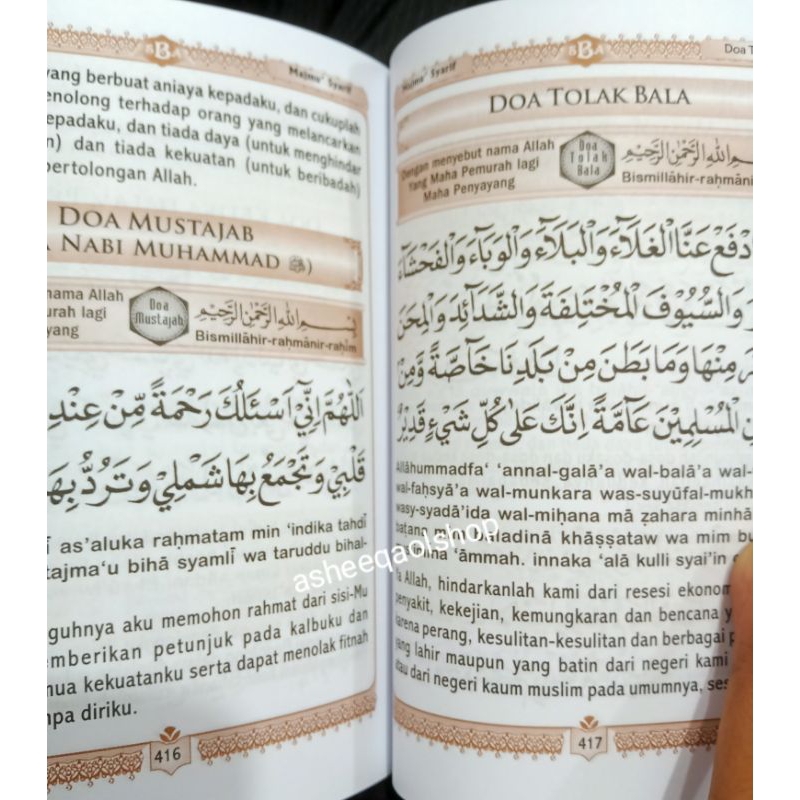 Majmu' Syarif
yang berbuat aniaya kepadaku, dan cukuplah
enolong terhadap orang yang melancarkan
epadaku, dan tiada daya (untuk menghindar
n) dan tiada kekuatan (untuk beribadah)
pertolongan Allah.
DOA MUSTAJAB
A NABI MUHAMMAD ﷺ)
nama Allah
urah lagi
yang
Doa
Mustajab
بِسْمِ اللهِ الرَّحْمٰنِ الرَّحِيْمِ
Bismillāhir-raḥmānir-raḥīm
اَللّٰهُمَّ اِنِّيْٓ اَسْئَلُكَ رَحْمَةً مِّنْ عِنْدِ
قَلْبِيْ وَتَجْمَعُ بِهَا شَمْلِيْ وَتَرُدُّ بِهَا
as'aluka raḥmatam min 'indika tahdī
tajma'u bihā syamlī wa taruddu bihal-
guhnya aku memohon rahmat dari sisi-Mu
emberikan petunjuk pada kalbuku dan
mua kekuatanku serta dapat menolak fitnah
npa diriku.
416
Majmu' Syarif
Doa T
DOA TOLAK BALA
Dengan menyebut nama Allah
Yang Maha Pemurah lagi
Maha Penyayang
Doa
Tolak
Bala
بِسْمِ اللهِ الرَّحْمٰنِ الرَّحِيْمِ
Bismillāhir-raḥmāni
دْفَعْ عَنَّا الْغَلَآءَ وَالْبَلَآءَ وَالْوَبَآءَ وَالْفَحْشَآءَ
وَالسُّيُوْفَ الْمُخْتَلِفَةَ وَالشَّدَآئِدَ وَالْمِحَنَ
رَ مِنْهَا وَمَا بَطَنَ مِنْ بَلَدِنَا خَآصَّةً وَّمِنْ
نِ الْمُسْلِمِيْنَ عَآمَّةً اِنَّكَ عَلٰى كُلِّ شَيْءٍ قَدِيْرٌ
Allāhummadfa' 'annal-galā'a wal-balā'a wal-
wal-faḥsyā'a wal-munkara was-suyūfal-mukh
wasy-syadā'ida wal-miḥana mā ẓahara minhā
baṭana mim baladinā khāṣṣataw wa mim bu
'āmmah. innaka 'alā kulli syai'in
a Allah, hindarkanlah kami dari resesi ekonom
penyakit, kekejian, kemungkaran dan bencana y
karena perang, kesulitan-kesulitan dan berbagai p
yang lahir maupun yang batin dari negeri kami
atau dari negeri kaum muslim pada umumnya, ses
417
asheeqaolshop